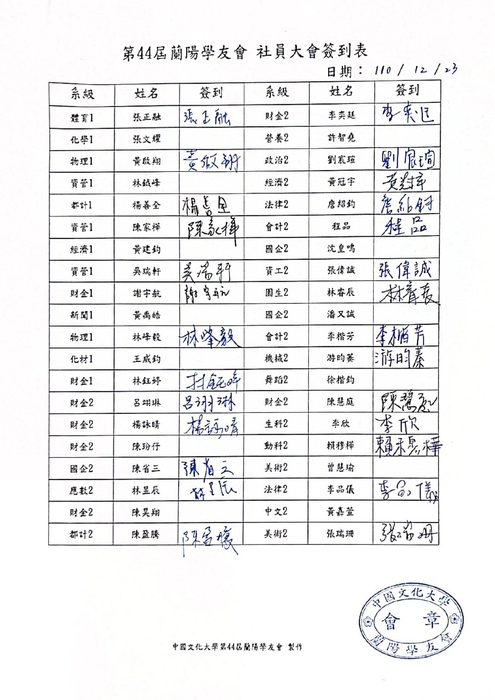 第44屆蘭陽學友會 社員大會簽到表
日期：110/12/23
系級 姓名 簽到 系級 姓名 簽到
體育1 張正融 張正融 財金2 李奕廷 李奕廷
化學1 張文耀 營養2 許智堯
物理1 黃啟翔 黃啟翔 政治2 劉宸瑄 劉宸瑄
資管1 林鉞峰 經濟2 黃冠宇 黃冠宇
都計1 楊善全 楊善全 法律2 詹紹鈞 詹紹鈞
資管1 陳家樺 陳家樺 會計2 程品 程品
經濟1 黃建鈞 國企2 沈皇鳴
資管1 吳瑞軒 吳瑞軒 資工2 張偉誠 張偉誠
財金1 謝宇航 園生2 林睿辰
新聞1 黃禹皓 國企2 潘又誠
物理1 林峰毅 林峰毅 會計2 李楷芳 李楷芳
化材1 王威鈞 機械2 游昀蓁 游昀蓁
財金1 林鈺婷 舞蹈2 徐楷鈞
財金2 呂翊琳 呂翊琳 財金2 陳慧庭
財金2 楊詠晴 楊詠晴 生科2 李欣 李欣
財金2 陳玢伃 動科2 賴穆樺
國企2 陳省三 陳省三 美術2 曾慧瑜
應數2 林昱辰 林昱辰 法律2 李品儀 李品儀
財金2 陳昊翔 中文2 黃嘉萱
都計2 陳盈騰 美術2 張瑞珊 張瑞珊
中國文化大學
會章
蘭陽學友會
中國文化大學第44屆蘭陽學友會 製作